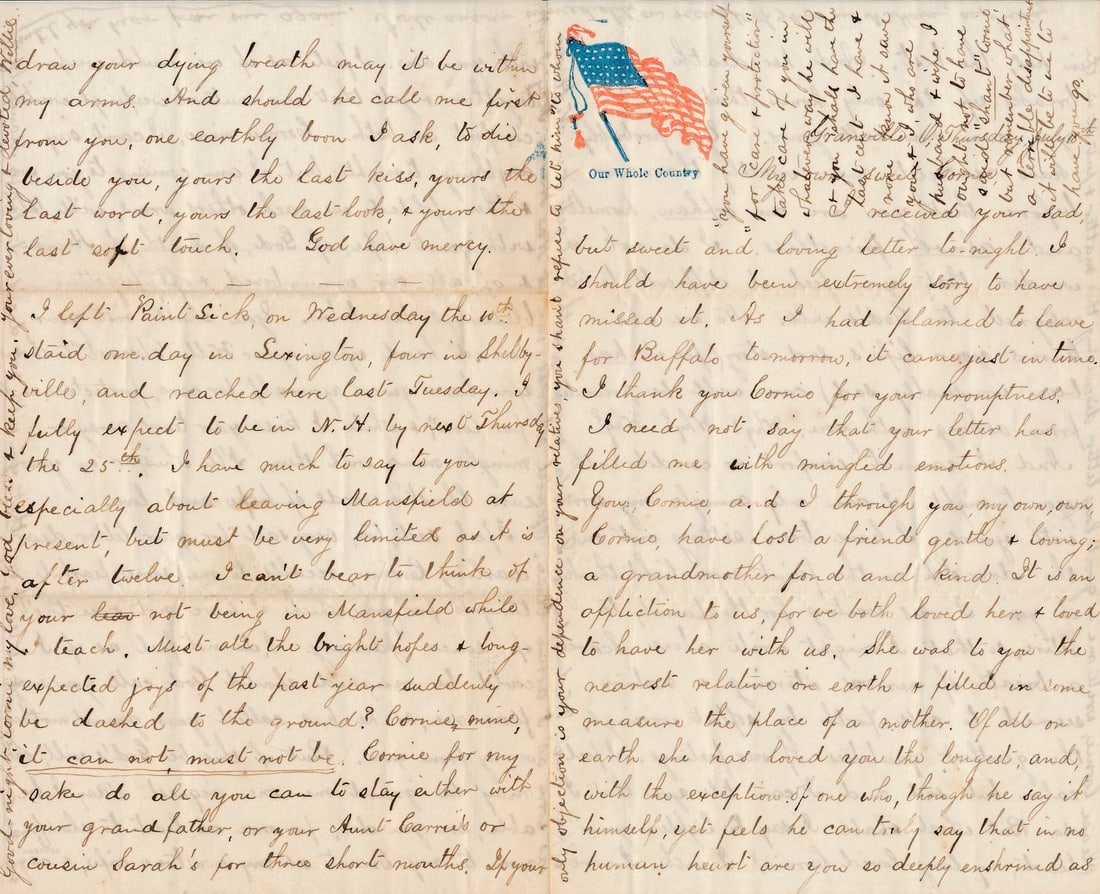 Our Whole Country
Granville O. Thursday July 18th
My own sweet Cornie
I received your sad
but sweet and loving letter to-night I
should have been extremely sorry to have
missed it. As I had planned to leave
for Buffalo to-morrow, it came just in time.
I thank you Cornie for your promptness.
I need not say that your letter has
filled me with mingled emotions.
You, Cornie and I through you, my own, own,
Cornie, have lost a friend gentle & loving;
a grandmother fond and kind. It is an
affliction to us, for we both loved her & loved
to have her with us. She was to you the
nearest relative on earth & filled in some
measure the place of a mother. Of all on
earth she has loved you the longest, and,
with the exception of one who, though he say it
himself, yet feels he can truly say that in no
human heart are you so deeply enshrined as
draw your dying breath may it be within
my arms. And should he call me first
from you, one earthly boon I ask, to die
beside you, yours the last kiss, yours the
last word, yours the last look, & yours the
last soft touch. God have mercy.
I left Paint Lick, on Wednesday the 10th
staid one day in Lexington, four in Shelby-
ville, and reached here last Tuesday. I
fully expect to be in N.H. by next Thursday
the 25th. I have much to say to you
especially about leaving Mansfield at
present, but must be very limited as it is
after twelve. I can't bear to think of
your not being in Mansfield while
I teach. Must all the bright hopes & long-
expected joys of the past year suddenly
be dashed to the ground? Cornie, mine,
it can not, must not be. Cornie for my
sake do all you can to stay either with
your grandfather, or your Aunt Carrie's or
cousin Sarah's for three short months. If your
only objection is your dependence on your relatives, you shant refuse to let him "to whom
you have given yourself
"for care & protection"
take care of you in
whatever way he will
& you shall have the
last cent I have &
none know it save
you & I, who are
husband & wife. I
ought not to have
said "shant" Cornie
but remember what
a terrible disappointment
it will be to me to
have you go.
Good-night Cornie my love, God bless & keep you. Your ever loving & devoted, Willie.